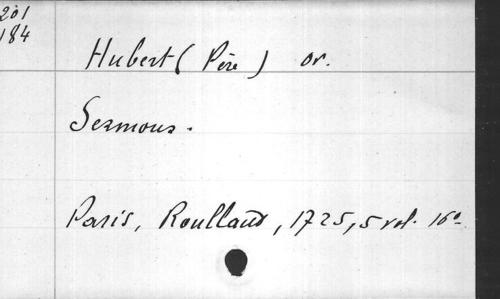 201
184
Hubert (Père) or.
Sermons.
Paris, Roulland, 1725, 5 vol. 16º